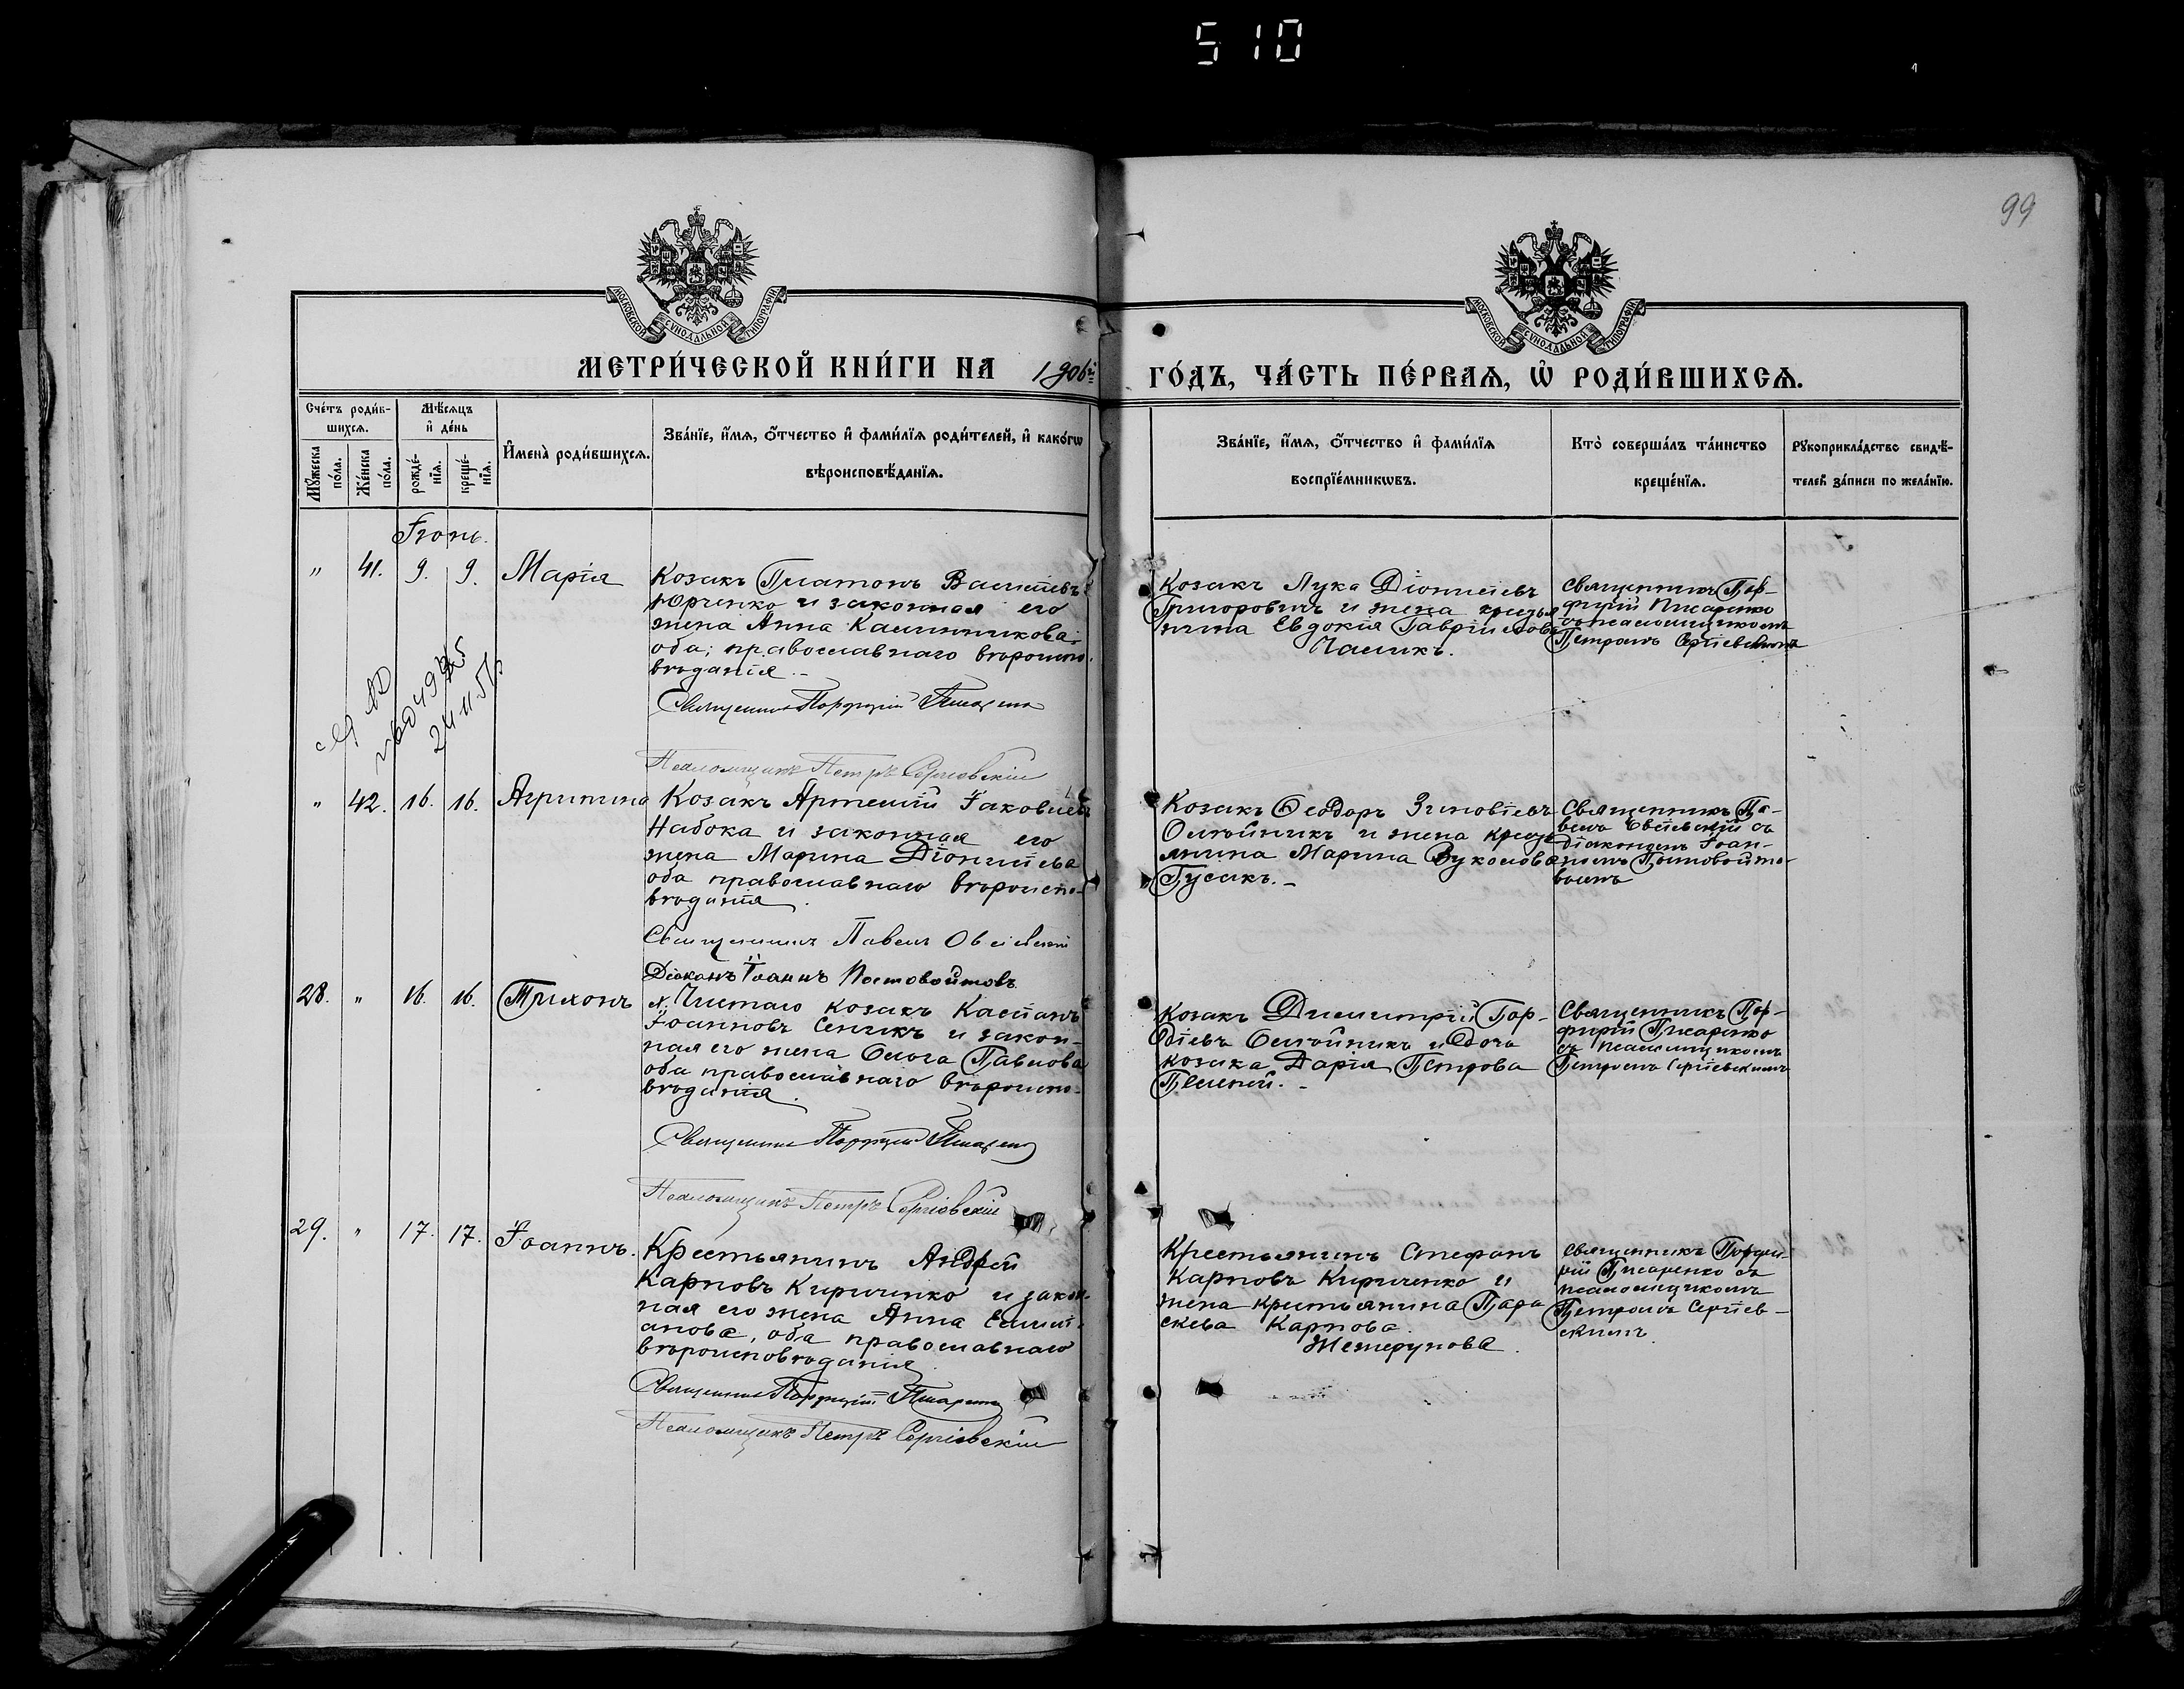 510
99
МОСКОВСКОЙ СѴНОДАЛЬНОЙ ТИПОГРАФІИ
МОСКОВСКОЙ СѴНОДАЛЬНОЙ ТИПОГРАФІИ
МЕТРИ́ЧЕСКОЙ КНИ́ГИ НА 1906й
ГО́ДЪ, ЧА́СТЬ ПЕ́РВАѦ, Ѡ РОДИ́ВШИХСѦ.
Сче́тъ роди́в-
шихсѧ.
Мꙋжеска
по́ла.
Же́нска
по́ла.
Мѣ́сѧцъ
и҆ де́нь
рожде́-
нїѧ.
креще́-
нїѧ.
И҆мена̀ роди́вшихсѧ.
Зва́нїе, и҆́мѧ, ѻ҆́тчество и҆ фами́лїѧ роди́телей, и҆ како́гѡ
вѣроисповѣ́данїѧ.
Зва́нїе, и҆́мѧ, ѻ҆́тчество и҆ фами́лїѧ
воспрїе́мникѡвъ.
Кто̀ соверша́лъ та́инство
креще́нїѧ.
Рꙋкоприкла́дство свидѣ́-
телей за́писи по жела́нїю.
Іюнь.
" 41. 9. 9. Марія
Козакъ Платонъ Васильевъ
Юрченко и законная его
жена Анна Калинникова
оба православнаго вѣроиспо-
вѣданія.-
Священникъ Порфирій Писаренко
Псаломщикъ Петръ Сергіевскій
Козакъ Лука Діонисіевъ
Григоровичъ и жена крестья
нина Евдокія Гавріилова
Чаликъ.
Священникъ Пор-
фирій Писаренко
съ псаломщикомъ
Петромъ Сергіевскимъ
24.11.51
" 42. 16. 16. Агрипина
Козакъ Артемій Іаковлевъ
Набока и законная его
жена Марина Діонисіева
оба православнаго вѣроиспо-
вѣданія.
Священникъ Павелъ
Діаконъ Іоаннъ Постовойтовъ
Козакъ Ѳеодоръ Зиновіевъ
Олейникъ и жена крестья
янина Марина Вуколова
Гусакъ.-
Священникъ Па-
велъ съ
діакономъ Іоан-
номъ Постовойто-
вымъ
28. " 16. 16. Тихонъ
х. Чистаго козакъ Касіанъ
Іоанновъ Сеникъ и закон-
ная его жена Ольга Павлова
оба православнаго вѣроиспо-
вѣданія.
Священникъ Порфирій Писаренко
Псаломщикъ Петръ Сергіевскій
Козакъ Димитрій Гор-
діевъ Олейникъ и дочь
козака Дарія Петрова
Священникъ Пор-
фирій Писаренко
съ псаломщикомъ
Петромъ Сергіевскимъ
29. " 17. 17. Іоаннъ.
Крестьянинъ Андрей
Карповъ Кириченко и закон-
ная его жена Анна Емилі-
анова, оба православнаго
вѣроисповѣданія
Священникъ Порфирій Писаренко
Псаломщикъ Петръ Сергіевскій
Крестьянинъ Стефанъ
Карповъ Кириченко и
жена крестьянина Пара
скева Карпова
Жежерунова.
Священникъ Порфи-
рій Писаренко съ
псаломщикомъ
Петромъ Сергіев-
скимъ.